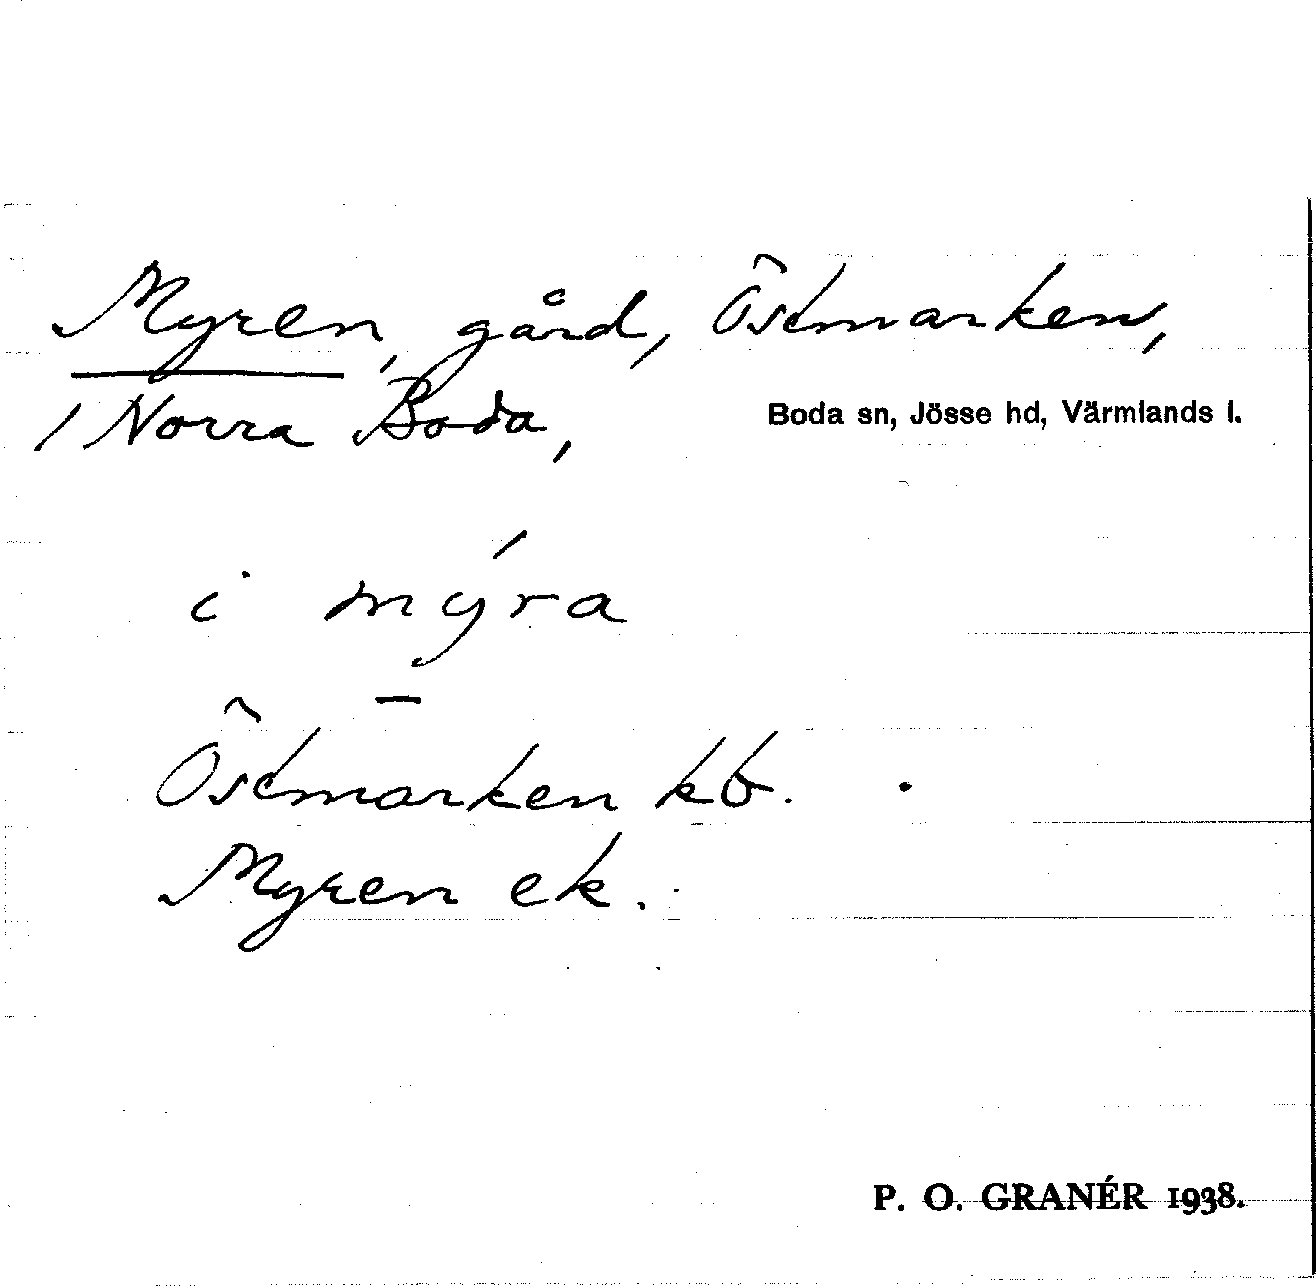 Myren, gård, Östmarken,
1 Norra Boda,
Boda sn, Jösse hd, Värmlands l.
i mýra
–
Östmarken kb.
Myren ek.
P. O. GRANÉR 1938.